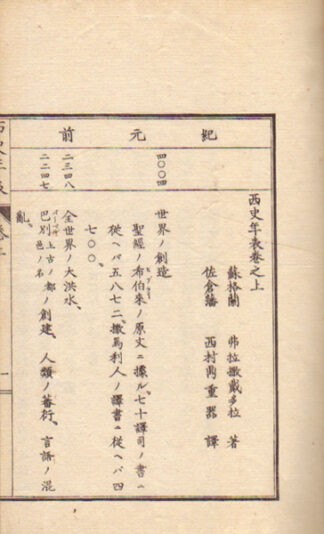 紀元前
西史年表卷之上
蘇格蘭 弗拉撒戴多拉 著
佐倉藩 西村鼎重器 譯
四〇〇四 世界ノ創造
聖經ノ希伯来ノ原文ニ據ル七十譯司ノ書ニ
從ヘバ五八七二、撒馬利人ノ譯書ニ從ヘバ四
七〇〇、
二三四八 全世界ノ大洪水、
二二四七 巴別上古ノ都邑ノ名ノ創建、人類ノ蕃衍、言語ノ混
亂、
一